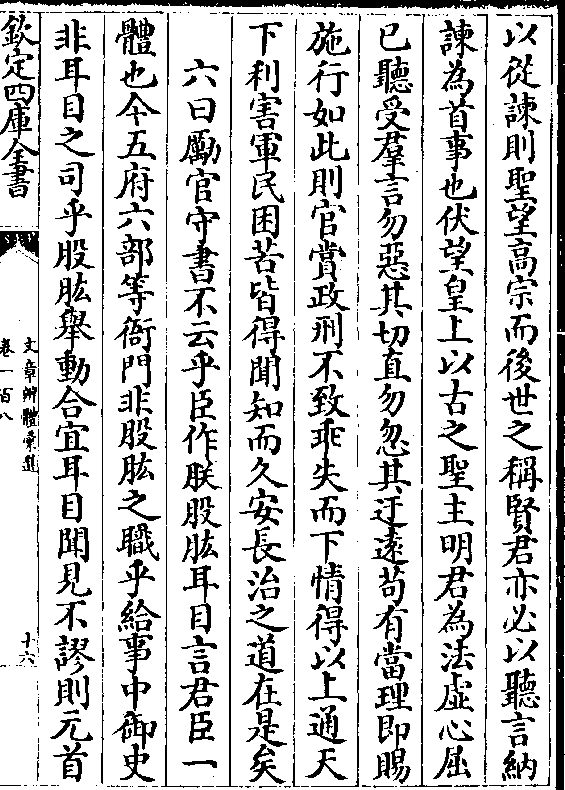 以從諫則聖望高宗而後世之稱賢君亦必以聽言納
諫為首事也伏望皇上以古之聖主明君為法虛心屈
已聽受羣言勿惡其切直勿忽其迂遠茍有當理即賜
施行如此則官賞政刑不致乖失而下情得以上通天
下利害軍民困苦皆得聞知而久安長治之道在是矣
六曰勵官守書不云乎臣作朕股肱耳目言君臣一
體也今五府六部等衙門非股肱之職乎給事中御史
非耳目之司乎股肱舉動合宜耳目聞見不謬則元首
欽定四庫全書
文章辨體彙選
卷一百八
十六